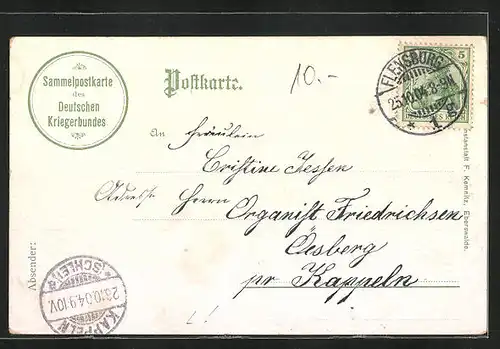 Sammelpostkarte
des
Deutschen
Kriegerbundes
Postkarte.
10.-
5
FLENSBURG
25.10.04.8-9N.
* 1 g.
An Fräulein
Cristine Jessen
Adresse Herrn
Organist Friedrichsen
Oesberg
pr Kappeln
Absender:
KAPPELN
26.10.04.9-10V.
*(SCHLEI)*
F. Kemnitz, Eberswalde.